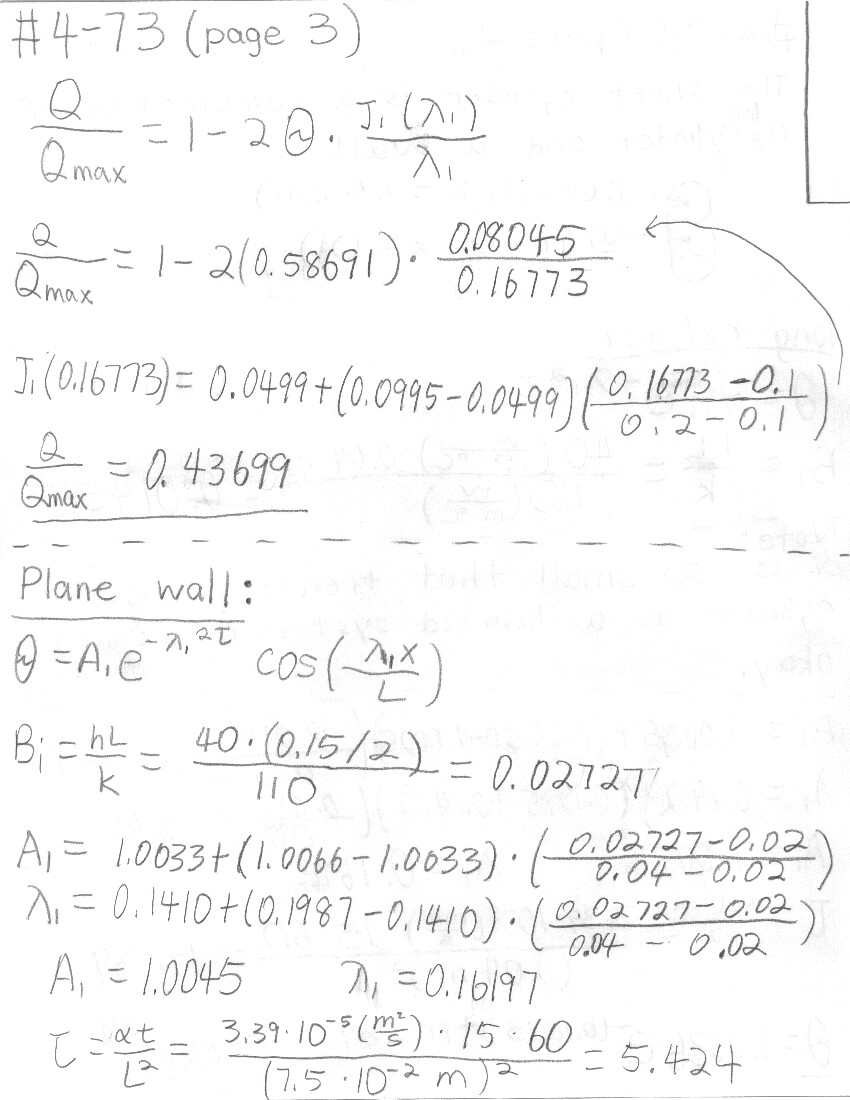 #4-73 (page 3)
Q/Qmax = 1 - 2θ · J₁(λ₁)/λ₁
Q/Qmax = 1 - 2(0.58691) · 0.08045/0.16773
J₁(0.16773) = 0.0499 + (0.0995 - 0.0499)((0.16773 - 0.1)/(0.2 - 0.1))
Q/Qmax = 0.43699
Plane wall:
θ = A₁e^(-λ₁²τ) cos(λ₁x/L)
Bi = hL/k = 40·(0.15/2)/110 = 0.02727
A₁ = 1.0033 + (1.0066 - 1.0033)·((0.02727 - 0.02)/(0.04 - 0.02))
λ₁ = 0.1410 + (0.1987 - 0.1410)·((0.02727 - 0.02)/(0.04 - 0.02))
A₁ = 1.0045 λ₁ = 0.16197
τ = αt/L² = 3.39·10⁻⁵(m²/s)·15·60/(7.5·10⁻² m)² = 5.424